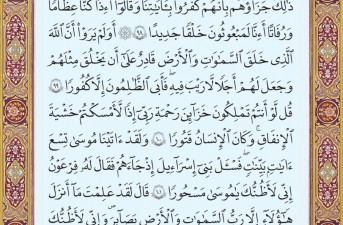 ذَٰلِكَ جَزَآؤُهُم بِأَنَّهُمْ كَفَرُوا۟ بِـَٔايَـٰتِنَا وَقَالُوٓا۟ أَءِذَا كُنَّا عِظَـٰمًا
وَرُفَـٰتًا أَءِنَّا لَمَبْعُوثُونَ خَلْقًا جَدِيدًا ۝٩٨ أَوَلَمْ يَرَوْا۟ أَنَّ ٱللَّهَ
ٱلَّذِى خَلَقَ ٱلسَّمَـٰوَٰتِ وَٱلْأَرْضَ قَادِرٌ عَلَىٰٓ أَن يَخْلُقَ مِثْلَهُمْ
وَجَعَلَ لَهُمْ أَجَلًا لَّا رَيْبَ فِيهِ فَأَبَى ٱلظَّـٰلِمُونَ إِلَّا كُفُورًا ۝٩٩
قُل لَّوْ أَنتُمْ تَمْلِكُونَ خَزَآئِنَ رَحْمَةِ رَبِّىٓ إِذًا لَّأَمْسَكْتُمْ خَشْيَةَ
ٱلْإِنفَاقِ ۚ وَكَانَ ٱلْإِنسَـٰنُ قَتُورًا ۝١٠٠ وَلَقَدْ ءَاتَيْنَا مُوسَىٰ تِسْعَ
ءَايَـٰتٍۭ بَيِّنَـٰتٍ ۖ فَسْـَٔلْ بَنِىٓ إِسْرَٰٓءِيلَ إِذْ جَآءَهُمْ فَقَالَ لَهُۥ فِرْعَوْنُ
إِنِّى لَأَظُنُّكَ يَـٰمُوسَىٰ مَسْحُورًا ۝١٠١ قَالَ لَقَدْ عَلِمْتَ مَآ أَنزَلَ
هَـٰٓؤُلَآءِ إِلَّا رَبُّ ٱلسَّمَـٰوَٰتِ وَٱلْأَرْضِ بَصَآئِرَ وَإِنِّى لَأَظُنُّكَ